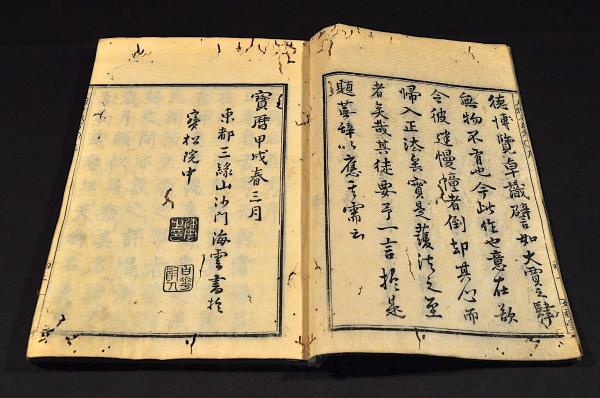 德博覽卓識譬如大賈之肆
無物不有也今此作也意在欲
令彼建慢幢者倒却其心而
歸入正法矣實是護法之至
者矣哉其徒要予一言於是
題蕪辭以應其需云
寶曆甲戌春三月
東都三緣山沙門海雲書於
寶松院中